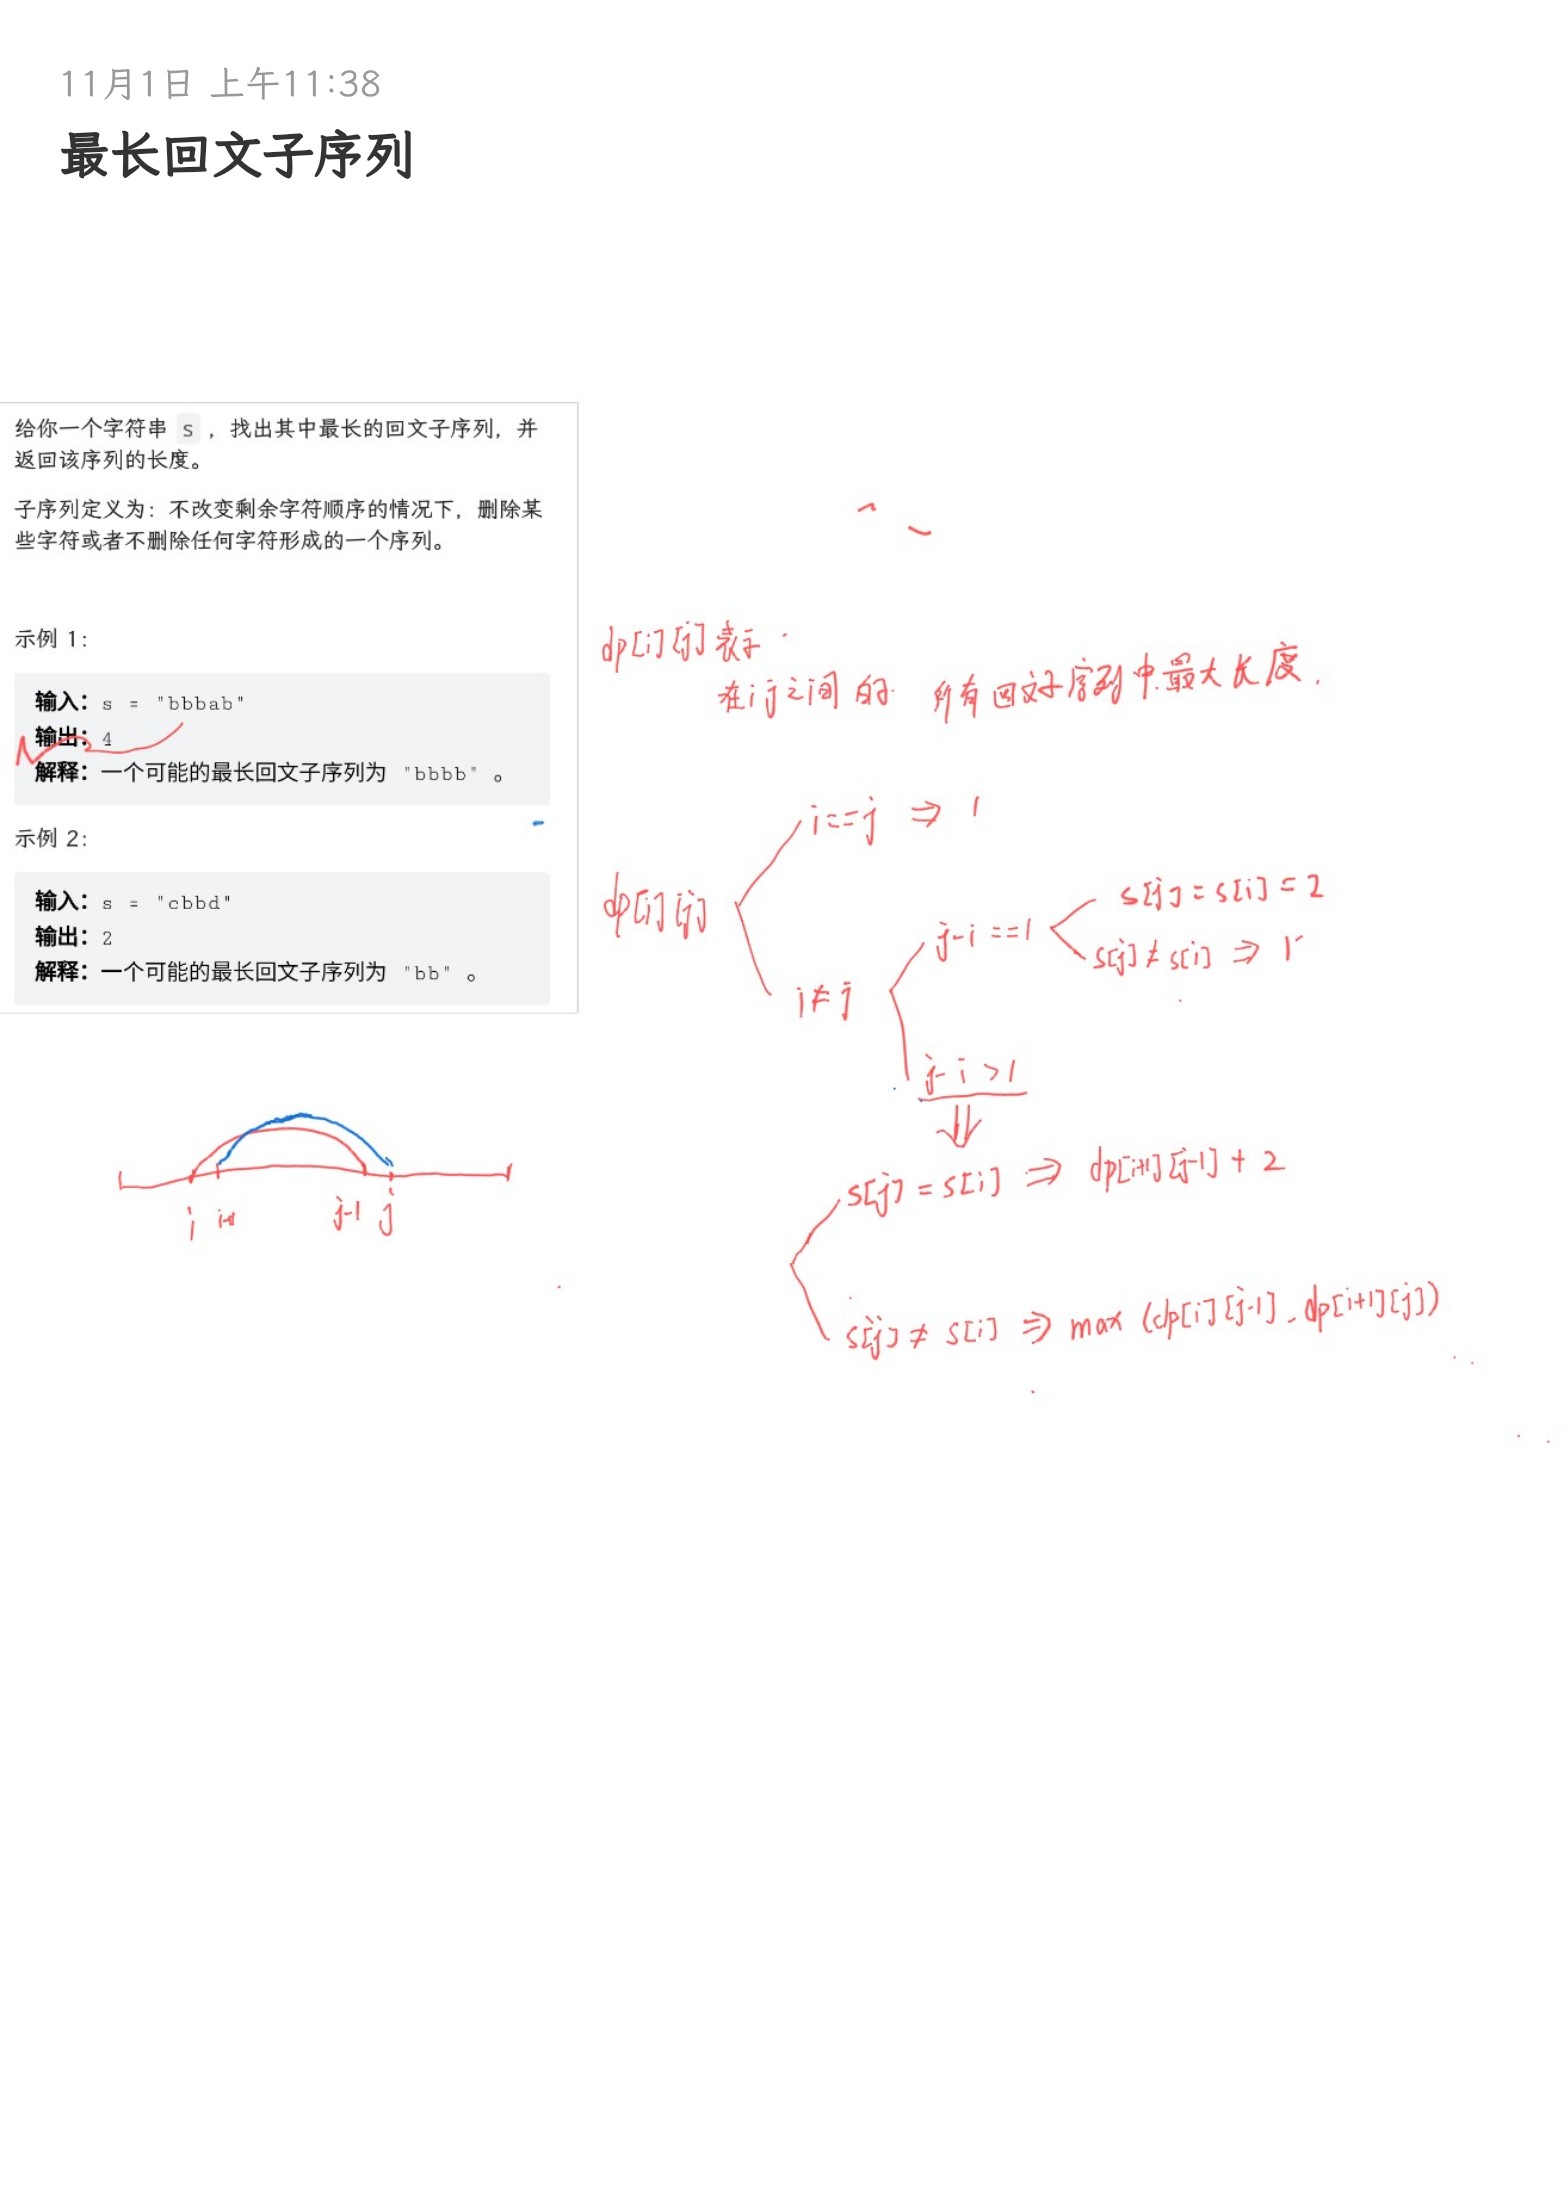 11月1日 上午11:38
最长回文子序列
给你一个字符串 s ，找出其中最长的回文子序列，并
返回该序列的长度。
子序列定义为：不改变剩余字符顺序的情况下，删除某
些字符或者不删除任何字符形成的一个序列。
示例 1：
输入：s = "bbbab"
输出：4
解释：一个可能的最长回文子序列为 "bbbb" 。
示例 2：
输入：s = "cbbd"
输出：2
解释：一个可能的最长回文子序列为 "bb" 。
dp[i][j]表示
在i j之间的 所有回文子序列中最大长度.
dp[i][j]
i==j ⇒ 1
i≠j
j-i==1
s[j]=s[i]=2
s[j]≠s[i] ⇒ 1
j-i>1
s[j]=s[i] ⇒ dp[i+1][j-1]+2
s[j]≠s[i] ⇒ max(dp[i][j-1], dp[i+1][j])
i i+1 j-1 j